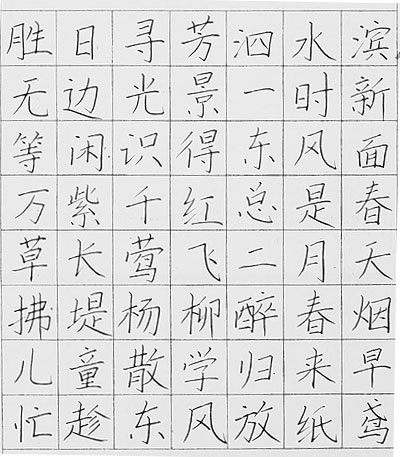 胜日寻芳泗水滨
无边光景一时新
等闲识得东风面
万紫千红总是春
草长莺飞二月天
拂堤杨柳醉春烟
儿童散学归来早
忙趁东风放纸鸢